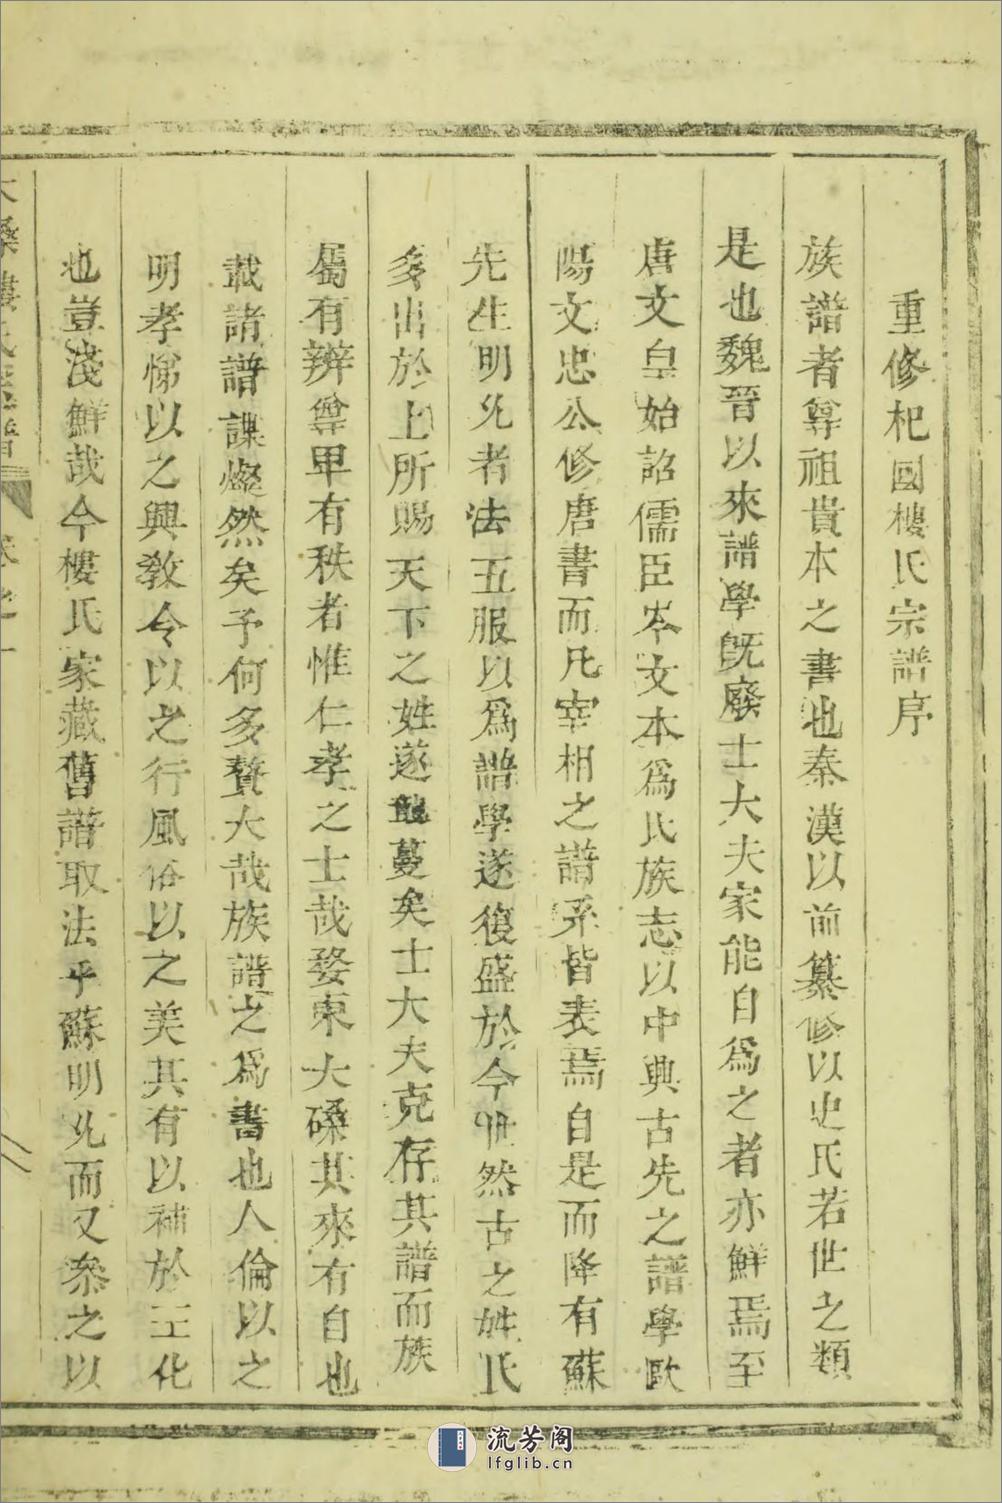 重修杞國樓氏宗譜序
族譜者尊祖貴本之書也秦漢以前纂修以史氏若世之類
是也魏晉以來譜學既廢士大夫家能自爲之者亦鮮焉至
唐文皇始詔儒臣岑文本爲氏族志以中興古先之譜學歐
陽文忠公修唐書而凡宰相之譜系皆表焉自是而降有蘇
先生明允者法五服以爲譜學遂復盛於今世然古之姓氏
多出於上所賜天下之姓遂蔓矣士大夫克存其譜而族
屬有辨尊卑有秩者惟仁孝之士哉婺東大磉其來有自也
載諸譜諜燦然矣予何多贅大哉族譜之爲書也人倫以之
明孝悌以之興敎令以之行風俗以之美其有以補於王化
也豈淺鮮哉今樓氏家藏舊譜取法乎蘇明允而又叅之以
大磉樓氏宗譜 卷之一
流芳阁
lfglib.cn